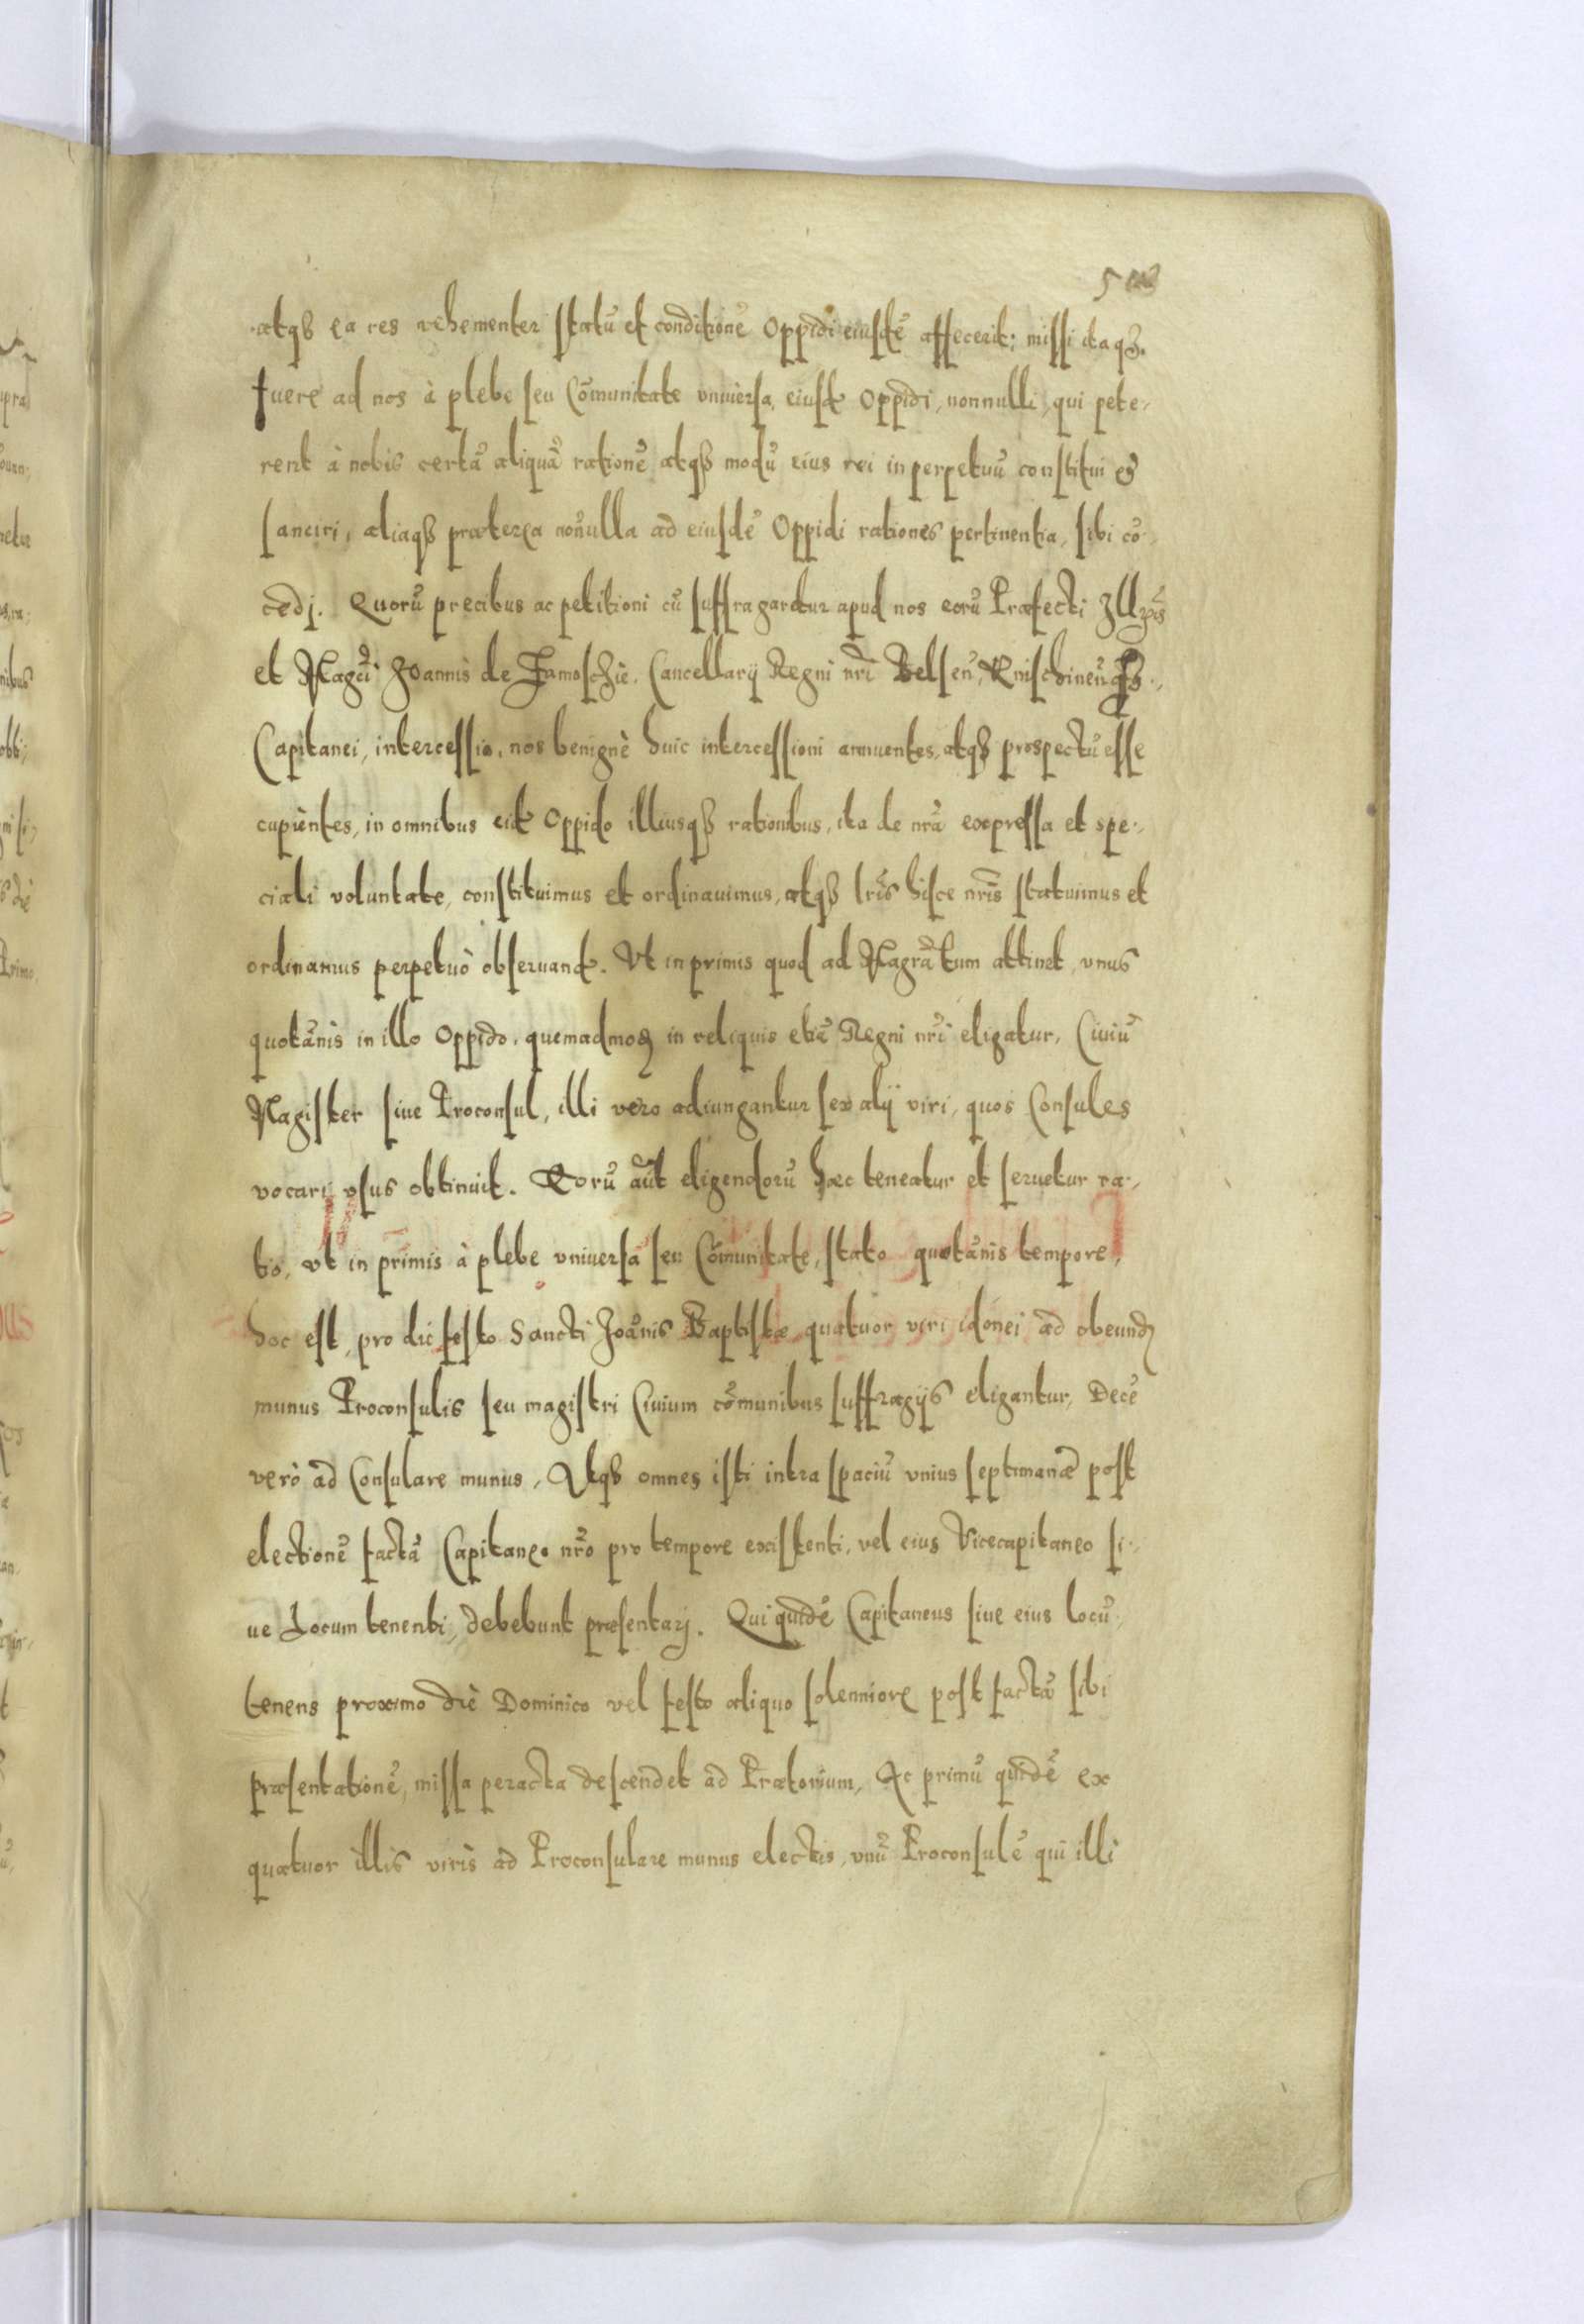 atqȝ ea res vehementer statũ et conditionẽ Oppidi eiusdẽ affecerit; missi itaqȝ.
fuere ad nos à plebe seu Cõmunitate vniuersa, eiusd Oppidi, nonnulli, qui pete-
rent à nobis certã aliquã rationẽ atqȝ modũ eius rei in perpetuũ constitui et
sanciri, aliaqȝ præterea nõnulla ad eiusdẽ Oppidi rationes pertinentia, sibi cõ-
cedj. Quorũ precibus ac petitioni cũ suffragaretur apud nos eorũ Præfecti Illris
et Magci Joannis de Zamoschie. Cancellarij Regni nri Belsen, Knischinenqȝ.,
Capitanei, intercessio, nos benignè huic intercessioni annuentes, atqȝ prospectũ esse
cupientes, in omnibus eid Oppido illiusqȝ rationibus, ita de nrã expressa et spe-
ciali voluntate, constituimus et ordinauimus, atqȝ lris hisce nris statuimus et
ordinamus perpetuò obseruand. Vt in primis quod ad Magrãtum attinet, vnus
quotãnis in illo Oppido, quemadmod in reliquis etiã Regni nri eligatur, Ciuiũ
Magister siue Proconsul, illi vero adiungantur sex alij viri, quos Consules
vocari vsus obtinuit. Eorũ aut eligendorũ hæc teneatur et seruetur ra-
tio, vt in primis à plebe vniuersa seu Cõmunitate, stato quotãnis tempore,
hoc est, pro die festo Sancti Joãnis Baptistæ, quatuor viri idonei ad obeund
munus Proconsulis seu magistri Ciuium cõmunibus suffragijs eligantur, Decẽ
verò ad Consulare munus, Atqȝ omnes isti intra spaciũ vnius septimanæ post
electionẽ factã Capitaneo nro pro tempore existenti, vel eius Vicecapitaneo si-
ue Locum tenenti, debebunt præsentarj. Qui quidẽ Capitaneus siue eius locũ
tenens proximo die Dominico vel festo aliquo solenniore post factã sibi
præsentationẽ, missa peracta descendet ad Prætorium, Ac primũ quidẽ ex
quatuor illis viris ad Proconsulare munus electis, vnũ Proconsulẽ qui illi